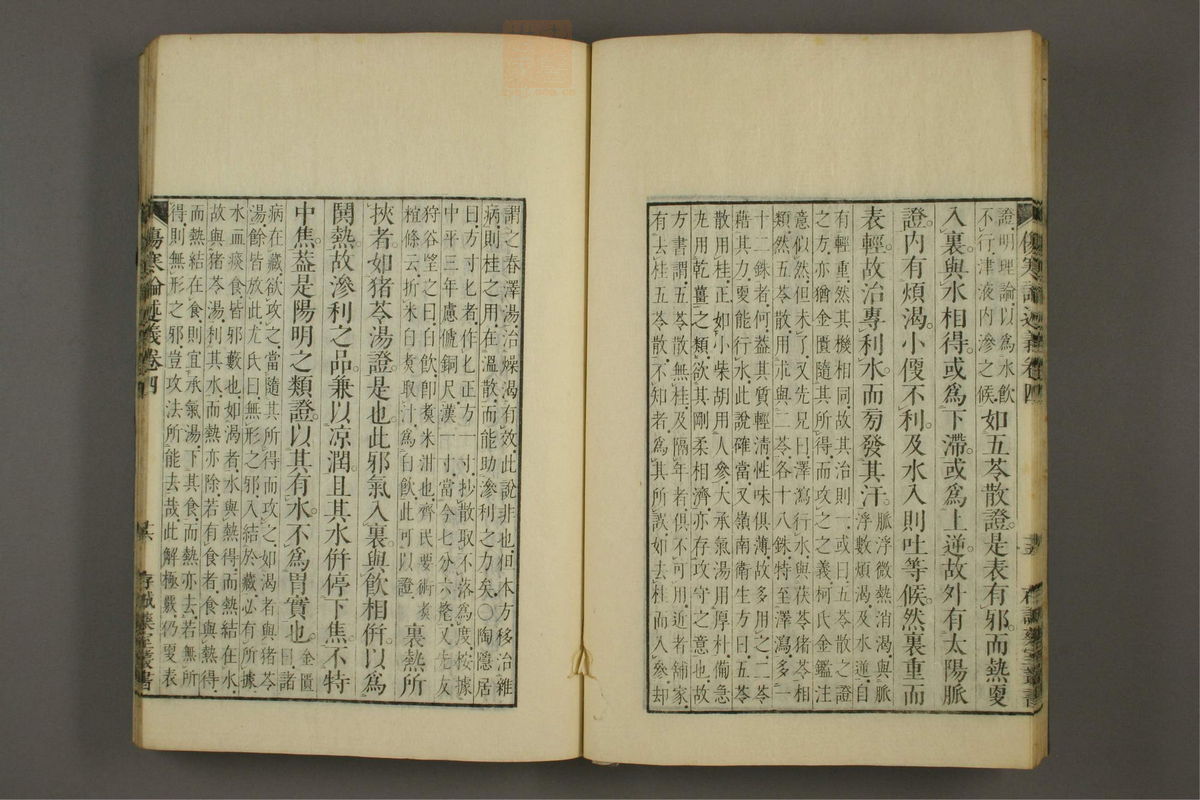 傷寒論述義卷四
十五
存誠藥室叢書
證明理論以爲水飲
不行津液内滲之候
如五苓散證是表有邪而熱更
入裏與水相得或爲下滯或爲上逆故外有太陽脈
證内有煩渴小便不利及水入則吐等候然裏重而
表輕故治專利水而旁發其汗
脈浮微熱消渴與脈
浮數煩渴及水逆自
有輕重然其機相同故其治則一或曰五苓散之證
之方亦猶金匱隨其所得而攻之之義柯氏金鑑注
意似然但未了又先兄曰澤瀉行水與茯苓猪苓相
類然五苓散用朮與二苓各十八銖特至澤瀉多一
十二銖者何蓋其質輕淸性味俱薄故多用之二苓
藉其力更能行水此說確當又嶺南衛生方曰五苓
散用桂正如小柴胡用人參大承氣湯用厚朴備急
丸用乾薑之類欲其剛柔相濟亦存攻守之意也故
方書謂五苓散無桂及隔年者俱不可用近者舖家
有去桂五苓散不知者爲其所誤如去桂而入參却
謂之春澤湯治燥渴有效此說非也但本方移治雜
病則桂之用在溫散而能助滲利之力矣○陶隱居
曰方寸匕者作匕正方一寸抄散取不落爲度按據
中平三年慮俿銅尺漢一寸當今七分六毫又先友
狩谷望之曰白飲卽煑米泔也齊民要術煑
條云折米白煑取汁爲白飲此可以證
裏熱所
挾者如猪苓湯證是也此邪氣入裏與飲相倂以爲
鬱熱故滲利之品兼以凉潤且其水倂停下焦不特
中焦蓋是陽明之類證以其有水不爲胃實也
金匱
曰諸
病在藏欲攻之當隨其所得而攻之如渴者與猪苓
湯餘皆放此尤氏曰無形之邪入結於藏必有所據
水血痰食皆邪藪也如渴者水與熱得而熱結在水
故與猪苓湯利其水而熱亦除若有食者食與熱得
而熱結在食則宜承氣湯下其食而熱亦去若無所
得則無形之邪豈攻法所能去哉此解極覈仍更表
傷寒論述義卷四
十六
存誠藥室叢書